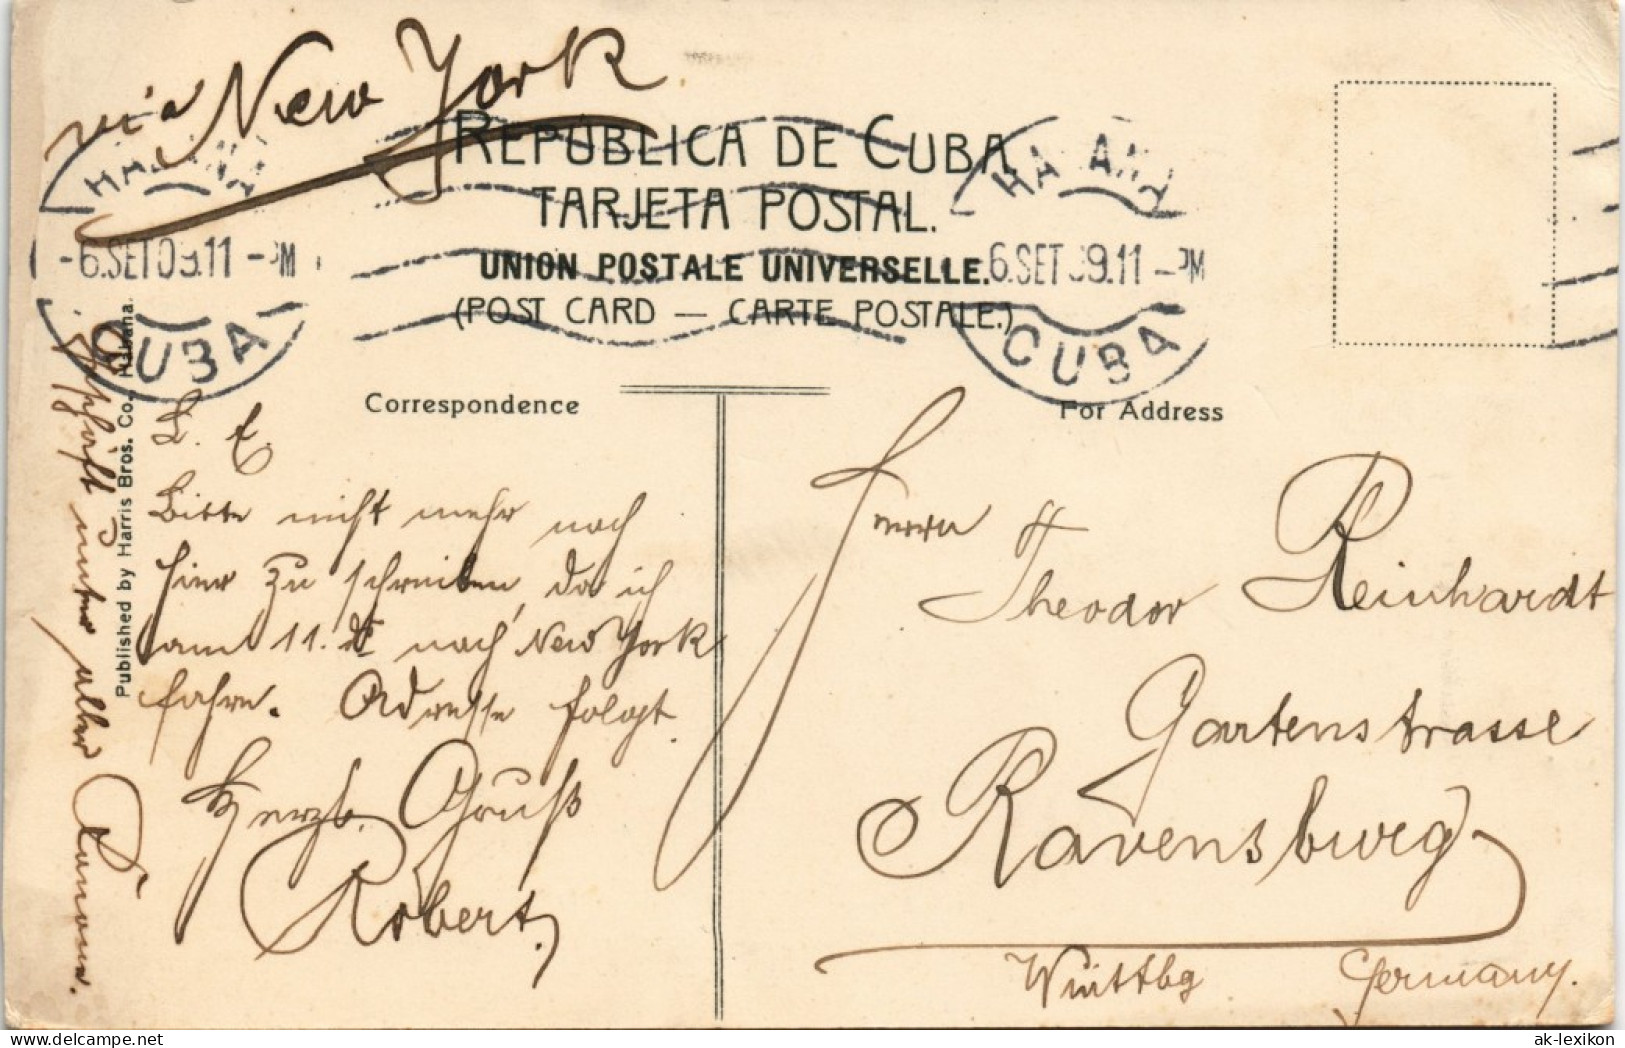 via New York
REPÚBLICA DE CUBA
TARJETA POSTAL.
UNION POSTALE UNIVERSELLE.
(POST CARD — CARTE POSTALE.)
HABANA
-6.SET 09.11 -PM
CUBA
HABANA
6.SET 09.11 -PM
CUBA
Correspondence
For Address
L. E.
Bitte nicht mehr nach
hier zu schreiben, da ich
am 11. ds nach New York
fahre. Adresse folgt.
Herzl. Gruß
Robert.
Geschäft unter aller Kanone.
Published by Harris Bros. Co., Habana.
Herrn
Theodor Reinhardt
Gartenstrasse
Ravensburg
Württbg Germany.
ak-lexikon